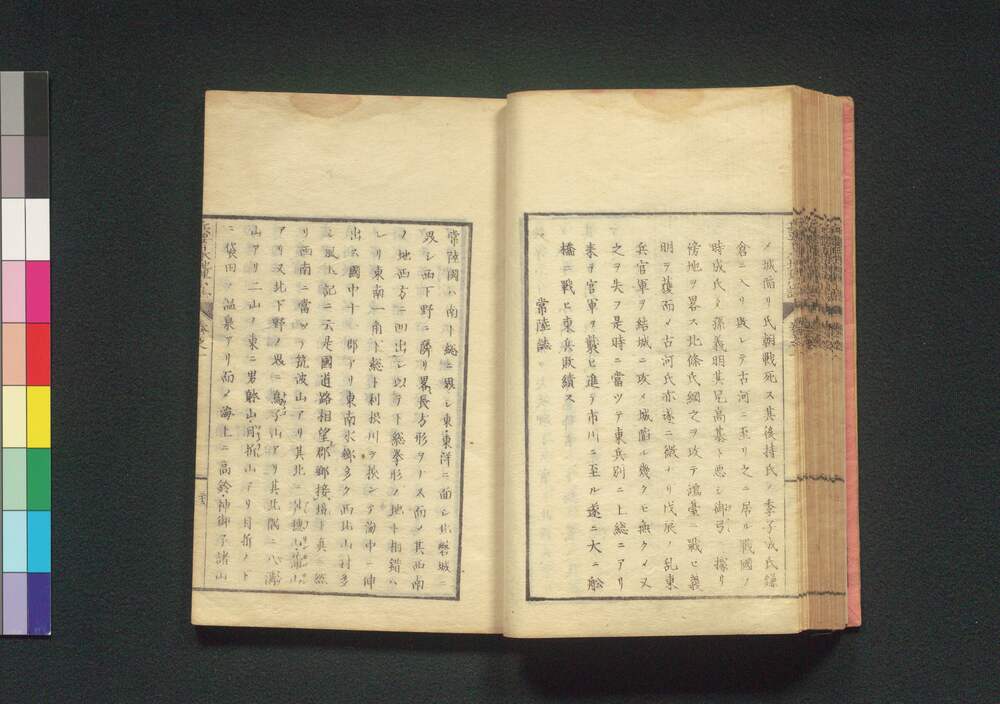 ノ城陥リ氏朝戦死ス其後持氏ノ季子成氏鎌
倉ニ入リ敗レテ古河ニ至リ之ニ居ル戰國ノ
時成氏ノ孫義明其兄高基ト悪シ御弓ニ據リ
傍地ヲ畧ス北條氏綱之ヲ攻テ鴻臺ニ戰ヒ義
明ヲ獲而メ古河氏亦遂ニ微ナリ戊辰ノ乱東
兵官軍ヲ結城ニ攻メ城陥ル幾クモ無クメ又
之ヲ失フ是時ニ當ツテ東兵別ニ上総ニアリ
来ル官軍ヲ襲ヒ進テ市川ニ至ル遂ニ大ニ舩
橋ニ戰ヒ東兵敗績ス
常陸誌
常陸國ハ南下総ニ界シ東東洋ニ面シ北磐城ニ
界シ西下野ニ隣リ畧長方形ヲナス而メ其西南
ノ地西方ニ凹出シ以テ下総拳形ノ地ト相錯ハ
レリ東南一角下総ト利根川ヲ挟ンテ海中ニ伸
出ス國中十一郡アリ東南水郷多ク西北山村多
シ風土記ニ云是國道路相望郡郷接境ト真ニ然
リ西南ニ當ツテ筑波山アリ其北ニ
アリ又北下野ノ界ニ鳥子山アリ其北隅ニ八溝
山アリ二山ノ東ニ男躰山月折山アリ月折ノ下
ニ袋田ノ温泉アリ而メ海上ニ高鈴神御子諸山